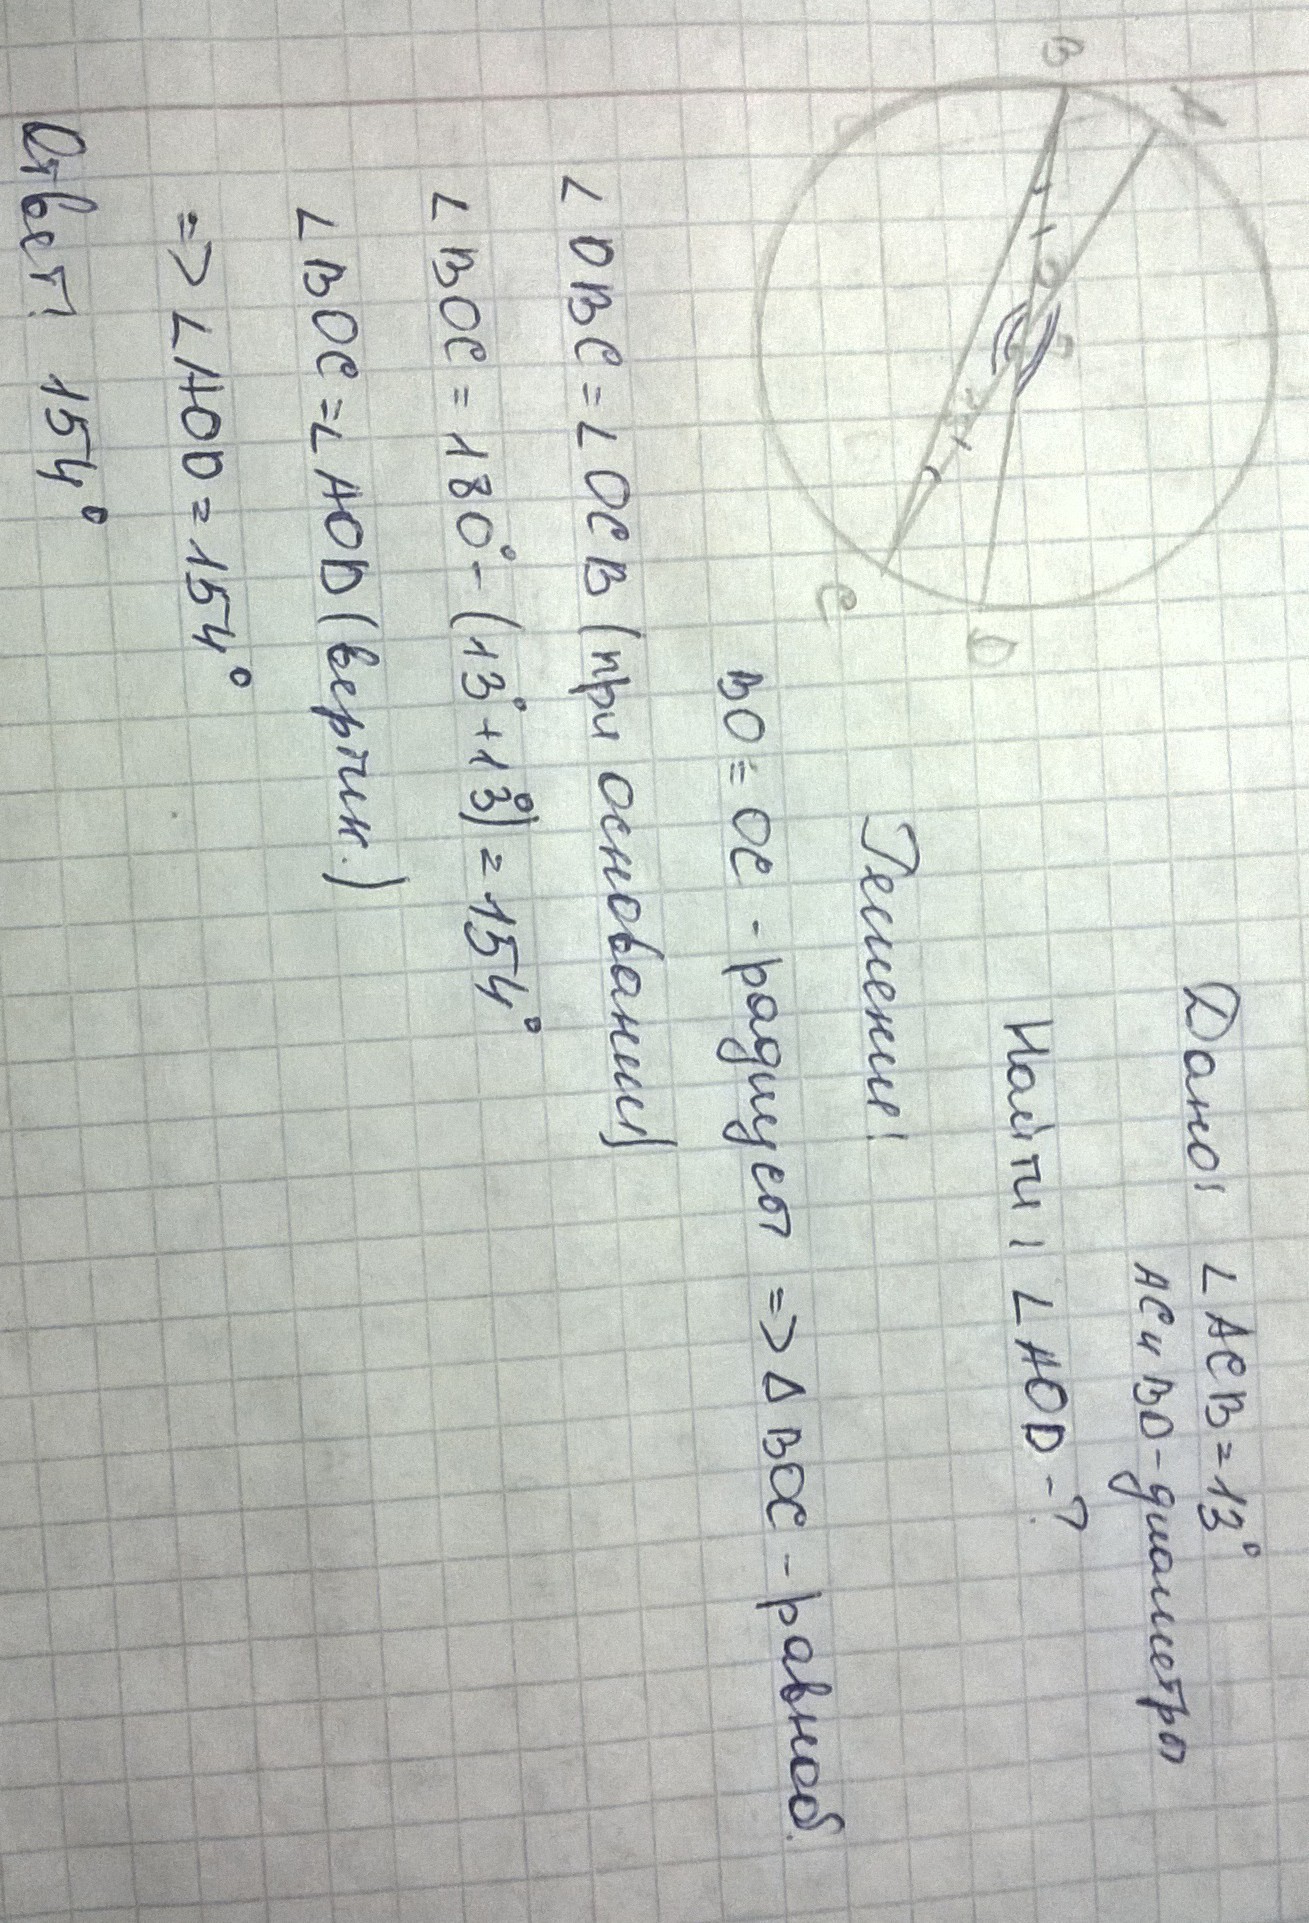 Дано: ∠ACB = 13°
AC и BD - диаметры
Найти: ∠AOD - ?
B
A
O
C
D
Решение:
BO = OC - радиусы => Δ BOC - равноб.
∠OBC = ∠OCB (при основании)
∠BOC = 180° - (13° + 13°) = 154°
∠BOC = ∠AOD (вертик.)
=> ∠AOD = 154°
Ответ: 154°